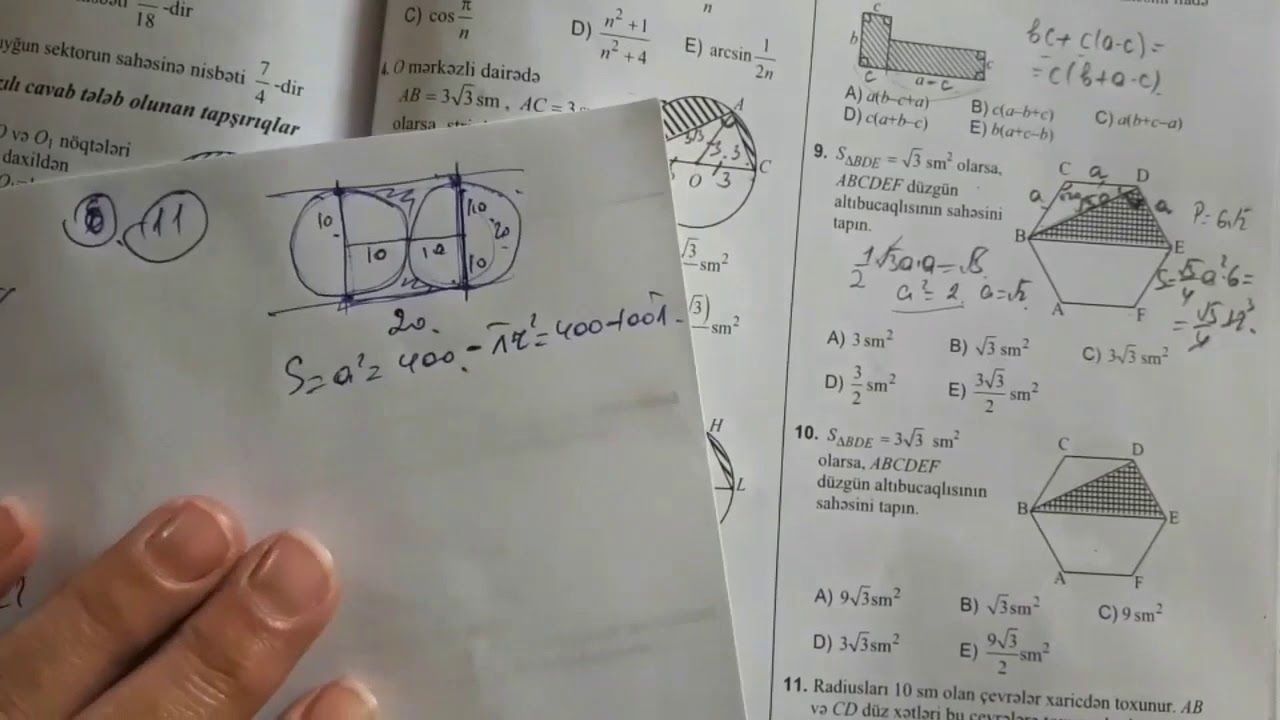 18 -dir
uyğun sektorun sahəsinə nisbəti 7/4 -dir
zılı cavab tələb olunan tapşırıqlar
O və O₁ nöqtələri
daxildən
C) cos π/n
D) (n²+1)/(n²+4)
E) arcsin 1/2n
n
4. O mərkəzli dairədə
AB = 3√3 sm , AC = 3
olarsa,
A
C
O 3
√3 sm²
√3) sm²
H
L
11
10
10
10
10
10
20
20.
S = a² = 400 - πr² = 400 - 100π
c
b
c
a - c
c
bc + c(a-c) =
= c(b+a-c)
A) a(b–c+a)
B) c(a–b+c)
C) a(b+c–a)
D) c(a+b–c)
E) b(a+c–b)
9. S△BDE = √3 sm² olarsa,
ABCDEF düzgün
altıbucaqlısının sahəsini
tapın.
C a D
a a
B E
A F
P = 6√2
1/2 √3a·a = √3
a² = 2 a = √2
S = √3/4 a²·6 =
A) 3 sm²
B) √3 sm²
C) 3√3 sm²
D) 3/2 sm²
E) 3√3/2 sm²
10. S△BDE = 3√3 sm²
olarsa, ABCDEF
düzgün altıbucaqlısının
sahəsini tapın.
C D
B E
A F
A) 9√3sm²
B) √3sm²
C) 9 sm²
D) 3√3sm²
E) 9√3/2 sm²
11. Radiusları 10 sm olan çevrələr xaricdən toxunur. AB
və CD düz xətləri bu çevrələrə